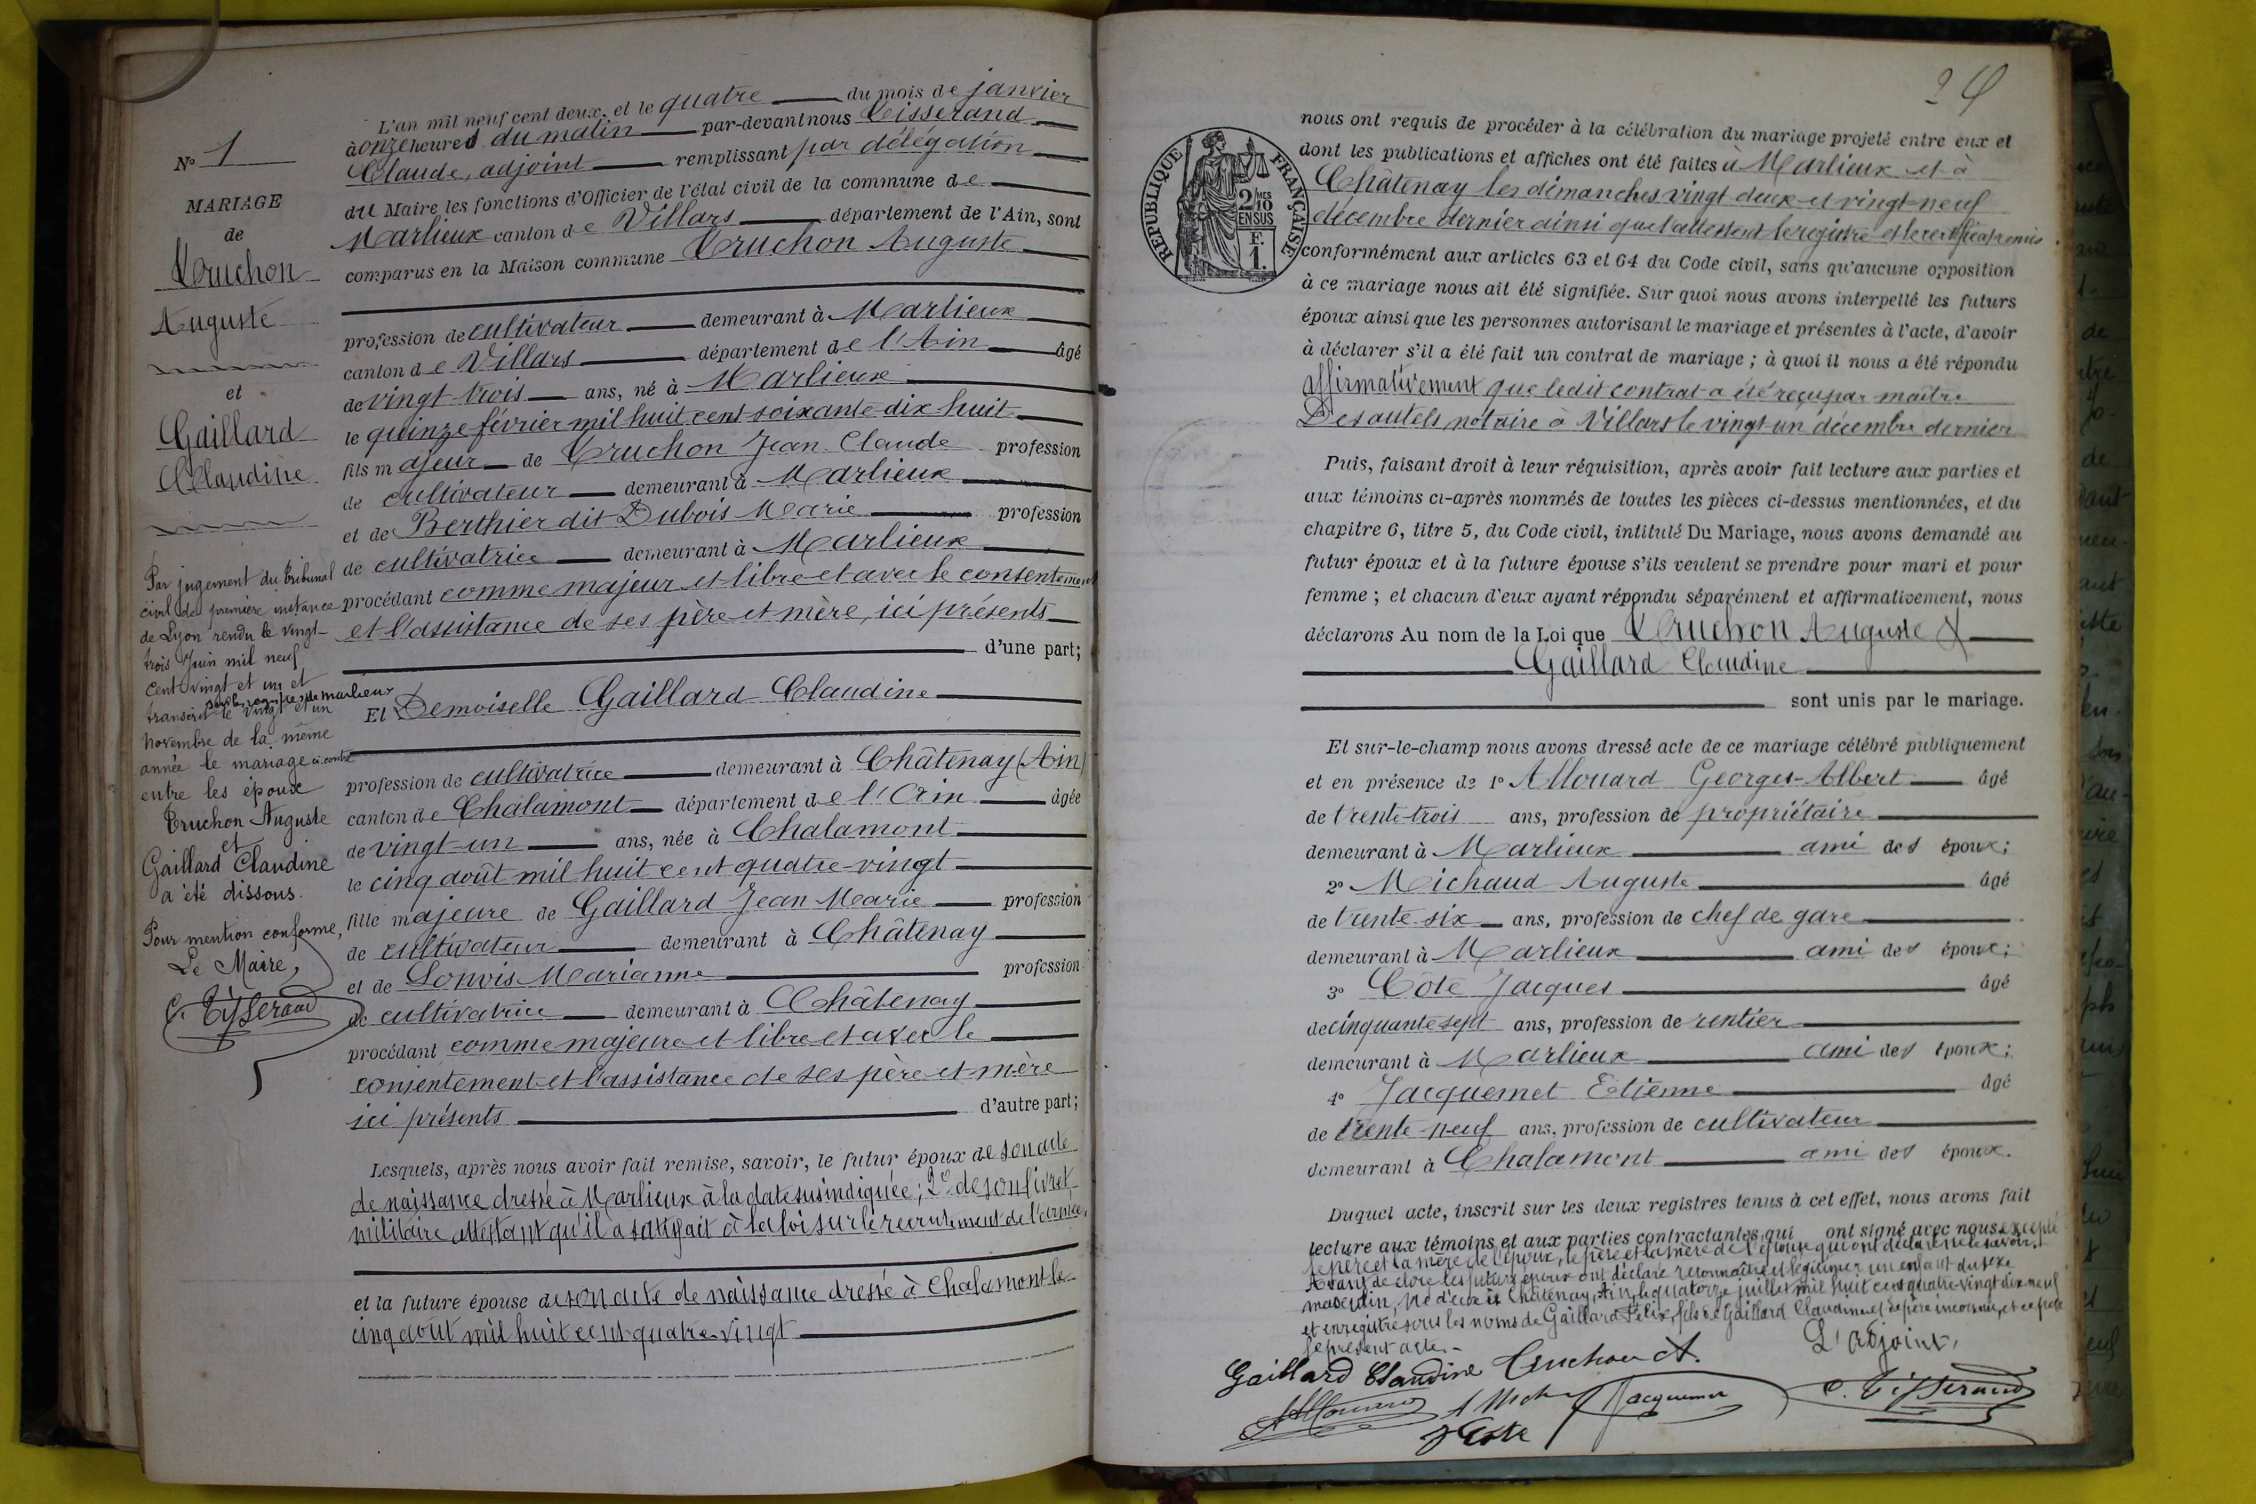 N° 1
MARIAGE
de
Truchon
Auguste
et
Gaillard
Claudine
Par jugement du tribunal
civil de première instance
de Lyon rendu le vingt-
trois Juin mil neuf
cent vingt et un et
sur les registres de Marlieux
transcrit le vingt et un
novembre de la même
année le mariage ci-contre
entre les époux
Truchon Auguste
et
Gaillard Claudine
a été dissous.
Pour mention conforme,
Le Maire,
C. Tisserand
L'an mil neuf cent deux, et le quatre du mois de janvier
à onze heures du matin par-devant nous Tisserand
Claude, adjoint remplissant par délégation
du Maire les fonctions d'Officier de l'état civil de la commune de
Marlieux canton de Villars département de l'Ain, sont
comparus en la Maison commune Truchon Auguste
profession de cultivateur demeurant à Marlieux
canton de Villars département de l'Ain âgé
de vingt-trois ans, né à Marlieux
le quinze février mil huit cent soixante-dix huit
fils majeur de Truchon Jean Claude profession
de cultivateur demeurant à Marlieux
et de Berthier dit Dubois Marie profession
de cultivatrice demeurant à Marlieux
procédant comme majeur et libre et avec le consentement
et l'assistance de ses père et mère, ici présents
d'une part;
Et Demoiselle Gaillard Claudine
profession de cultivatrice demeurant à Châtenay (Ain)
canton de Chalamont département de l'Ain âgée
de vingt-un ans, née à Chalamont
le cinq août mil huit cent quatre-vingt
fille majeure de Gaillard Jean Marie profession
de cultivateur demeurant à Châtenay
et de Marianne profession
de cultivatrice demeurant à Châtenay
procédant comme majeure et libre et avec le
consentement et l'assistance de ses père et mère
ici présents d'autre part;
Lesquels, après nous avoir fait remise, savoir, le futur époux de son acte
de naissance dressé à Marlieux à la date susindiquée; 2° de son livret
militaire attestant qu'il a satisfait à la loi sur le recrutement de l'armée,
et la future épouse de son acte de naissance dressé à Chalamont le
cinq août mil huit cent quatre-vingt
24
RÉPUBLIQUE FRANÇAISE
2/10 MES
EN SUS
F.
1.
nous ont requis de procéder à la célébration du mariage projeté entre eux et
dont les publications et affiches ont été faites à Marlieux et à
Châtenay les dimanches vingt-deux et vingt-neuf
décembre dernier ainsi que l'attestent le registre et le certificat remis
conformément aux articles 63 et 64 du Code civil, sans qu'aucune opposition
à ce mariage nous ait été signifiée. Sur quoi nous avons interpellé les futurs
époux ainsi que les personnes autorisant le mariage et présentes à l'acte, d'avoir
à déclarer s'il a été fait un contrat de mariage ; à quoi il nous a été répondu
affirmativement que ledit contrat a été reçu par maître
Desautels notaire à Villars le vingt-un décembre dernier
Puis, faisant droit à leur réquisition, après avoir fait lecture aux parties et
aux témoins ci-après nommés de toutes les pièces ci-dessus mentionnées, et du
chapitre 6, titre 5, du Code civil, intitulé Du Mariage, nous avons demandé au
futur époux et à la future épouse s'ils veulent se prendre pour mari et pour
femme ; et chacun d'eux ayant répondu séparément et affirmativement, nous
déclarons Au nom de la Loi que Truchon Auguste &
Gaillard Claudine
sont unis par le mariage.
Et sur-le-champ nous avons dressé acte de ce mariage célébré publiquement
et en présence de 1° Allouard Georges-Albert âgé
de trente-trois ans, profession de propriétaire
demeurant à Marlieux ami des époux;
2° Michaud Auguste âgé
de trente-six ans, profession de chef de gare
demeurant à Marlieux ami des époux;
3° Côte Jacques âgé
de cinquante-sept ans, profession de rentier
demeurant à Marlieux ami des époux;
4° Jacquemet Etienne âgé
de trente-neuf ans, profession de cultivateur
demeurant à Chalamont ami des époux.
Duquel acte, inscrit sur les deux registres tenus à cet effet, nous avons fait
lecture aux témoins et aux parties contractantes qui ont signé avec nous excepté
le père et la mère de l'époux, le père et la mère de l'épouse qui ont déclaré ne le savoir.
Avant de clore les futurs époux ont déclaré reconnaître et légitimer un enfant du sexe
masculin, né d'eux à Châtenay, Ain, le quatorze juillet mil huit cent quatre-vingt dix neuf
et enregistré sous les noms de Gaillard Félix, fils de Gaillard Claudine et de père inconnu, et ce par
le présent acte.-
L'adjoint,
Gaillard Claudine Truchon A.
Allouard A Mich Jacquemet C. Tisserand
J Cote